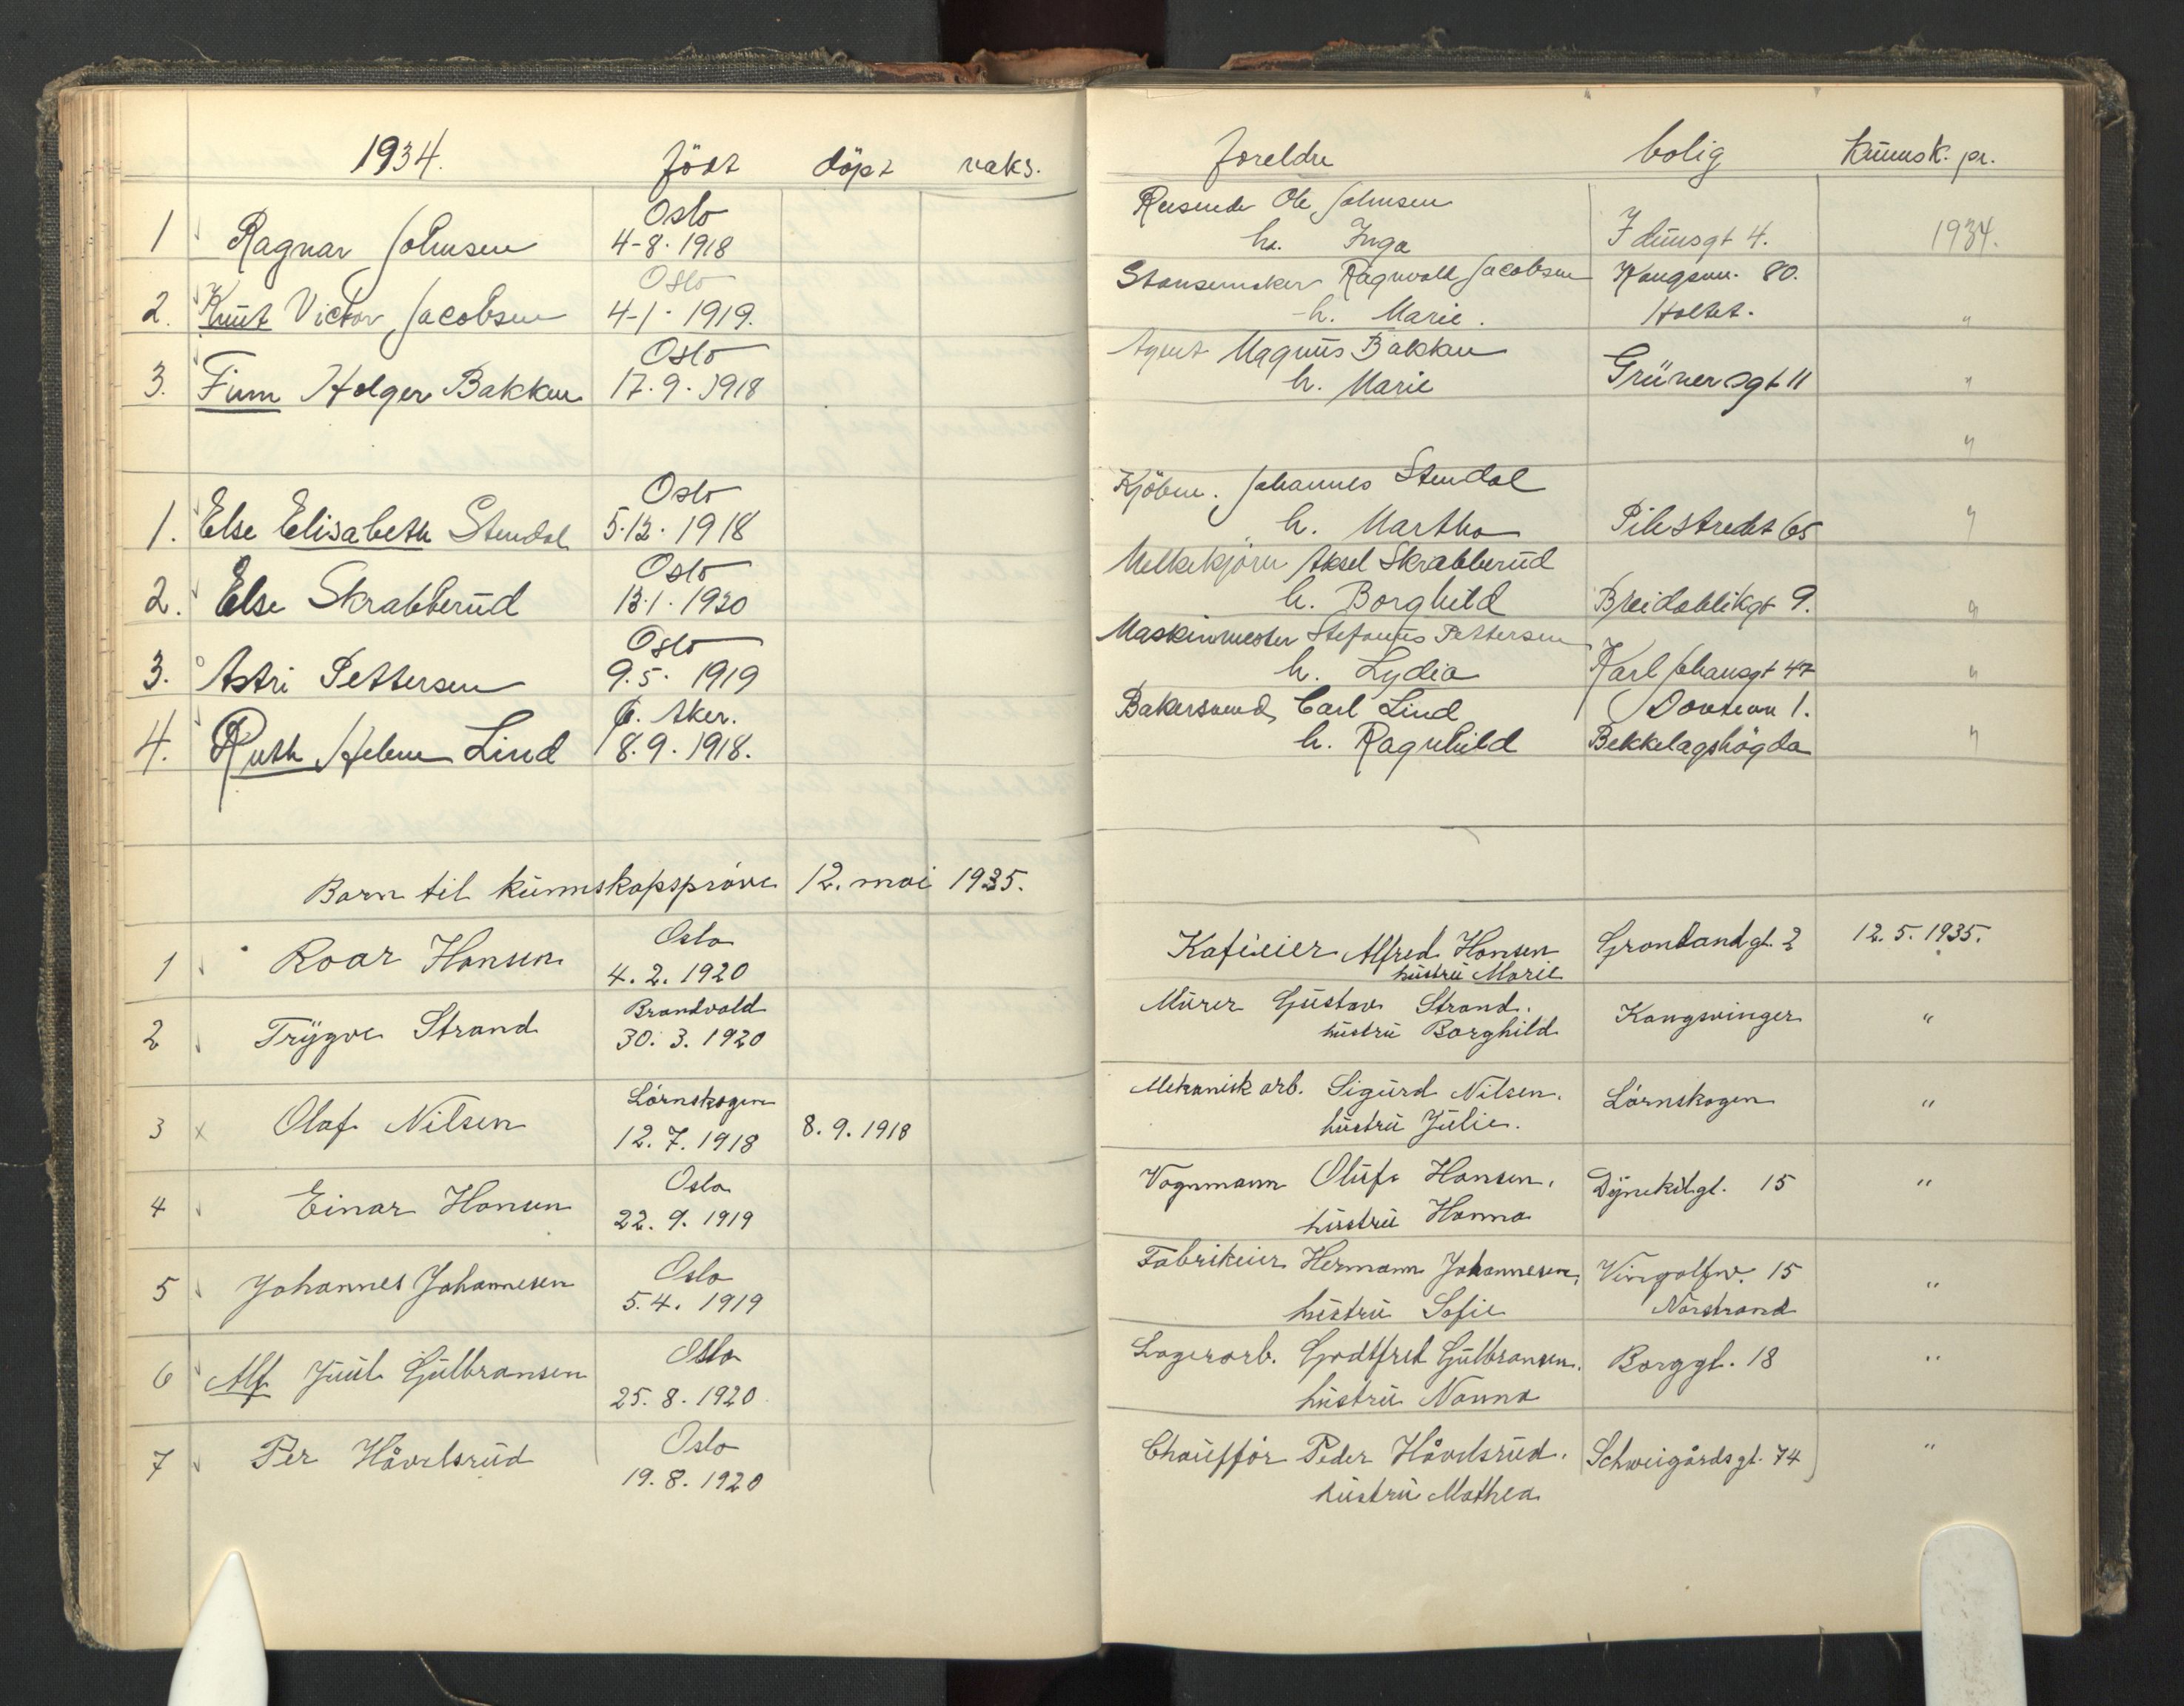 1934. född döpt vaks.
1 Ragnar Johnsen Oslo
4-8-1918
2. Knut Victor Jacobsen Oslo
4-1-1919.
3. Finn Holger Bakken Oslo
17.9.1918
1. Else Elisabeth Stendal Oslo
5.12.1918
2. Else Skrabberud Oslo
13.1.1920
3. Astri Pettersen Oslo
9.5.1919
4. Ruth Helene Lind Ø. Aker.
18.9.1918.
Barn til kunnskapsprøve 12. mai 1935.
1 Roar Hansen Oslo
4.2.1920
2 Trygve Strand Brandvold
30.3.1920
3 x Olaf Nilsen Lörnskogen
12.7.1918 8.9.1918
4 Einar Hansen Oslo
22.9.1919
5 Johannes Johannesen Oslo
5.4.1919
6 Alf Juul Gulbransen Oslo
25.8.1920
7 Per Håvelsrud Oslo
19.8.1920
foreldre bolig kunnsk. pr.
Reisende Ole Johnsen
h. Inga Idunsgt 4. 1934.
Stansemaker Ragnvald Jacobsen Kongsvn. 80.
h. Marie. Holtet. "
Agent Magnus Bakken
h. Marie Grünersgt 11 "
"
Kjöbm. Johannes Stendal
h. Martha Pilestredet 65 "
Melkekjörer Aksel Skrabberud
h. Borghild Breidablikgt 9. "
Maskinmester Stefanus Pettersen
h. Lydia Karl Johansgt 47 "
Bakersvend Carl Lind Dovrevn 1.
h. Ragnhild Bekkelagshögda "
Kafeeier Alfred Hansen Grönlandgt. 2 12.5.1935.
hustru Marie
Murer Gustav Strand. Kongsvinger "
hustru Borghild
Mekanisk arb. Sigurd Nilsen. Lörnskogen "
hustru Julie.
Vognmann Oluf Hansen. Dynekilgt. 15 "
hustru Hanna
Fabrikeier Hermann Johannesen, Vingolfsv. 15 "
hustru Sofie Norstrand
Lagerarb. Godtfred Gulbransen. Borggt. 18 "
hustru Nanna
Chauffør Peder Håvelsrud. Schweigårdsgt. 74 "
hustru Mathea